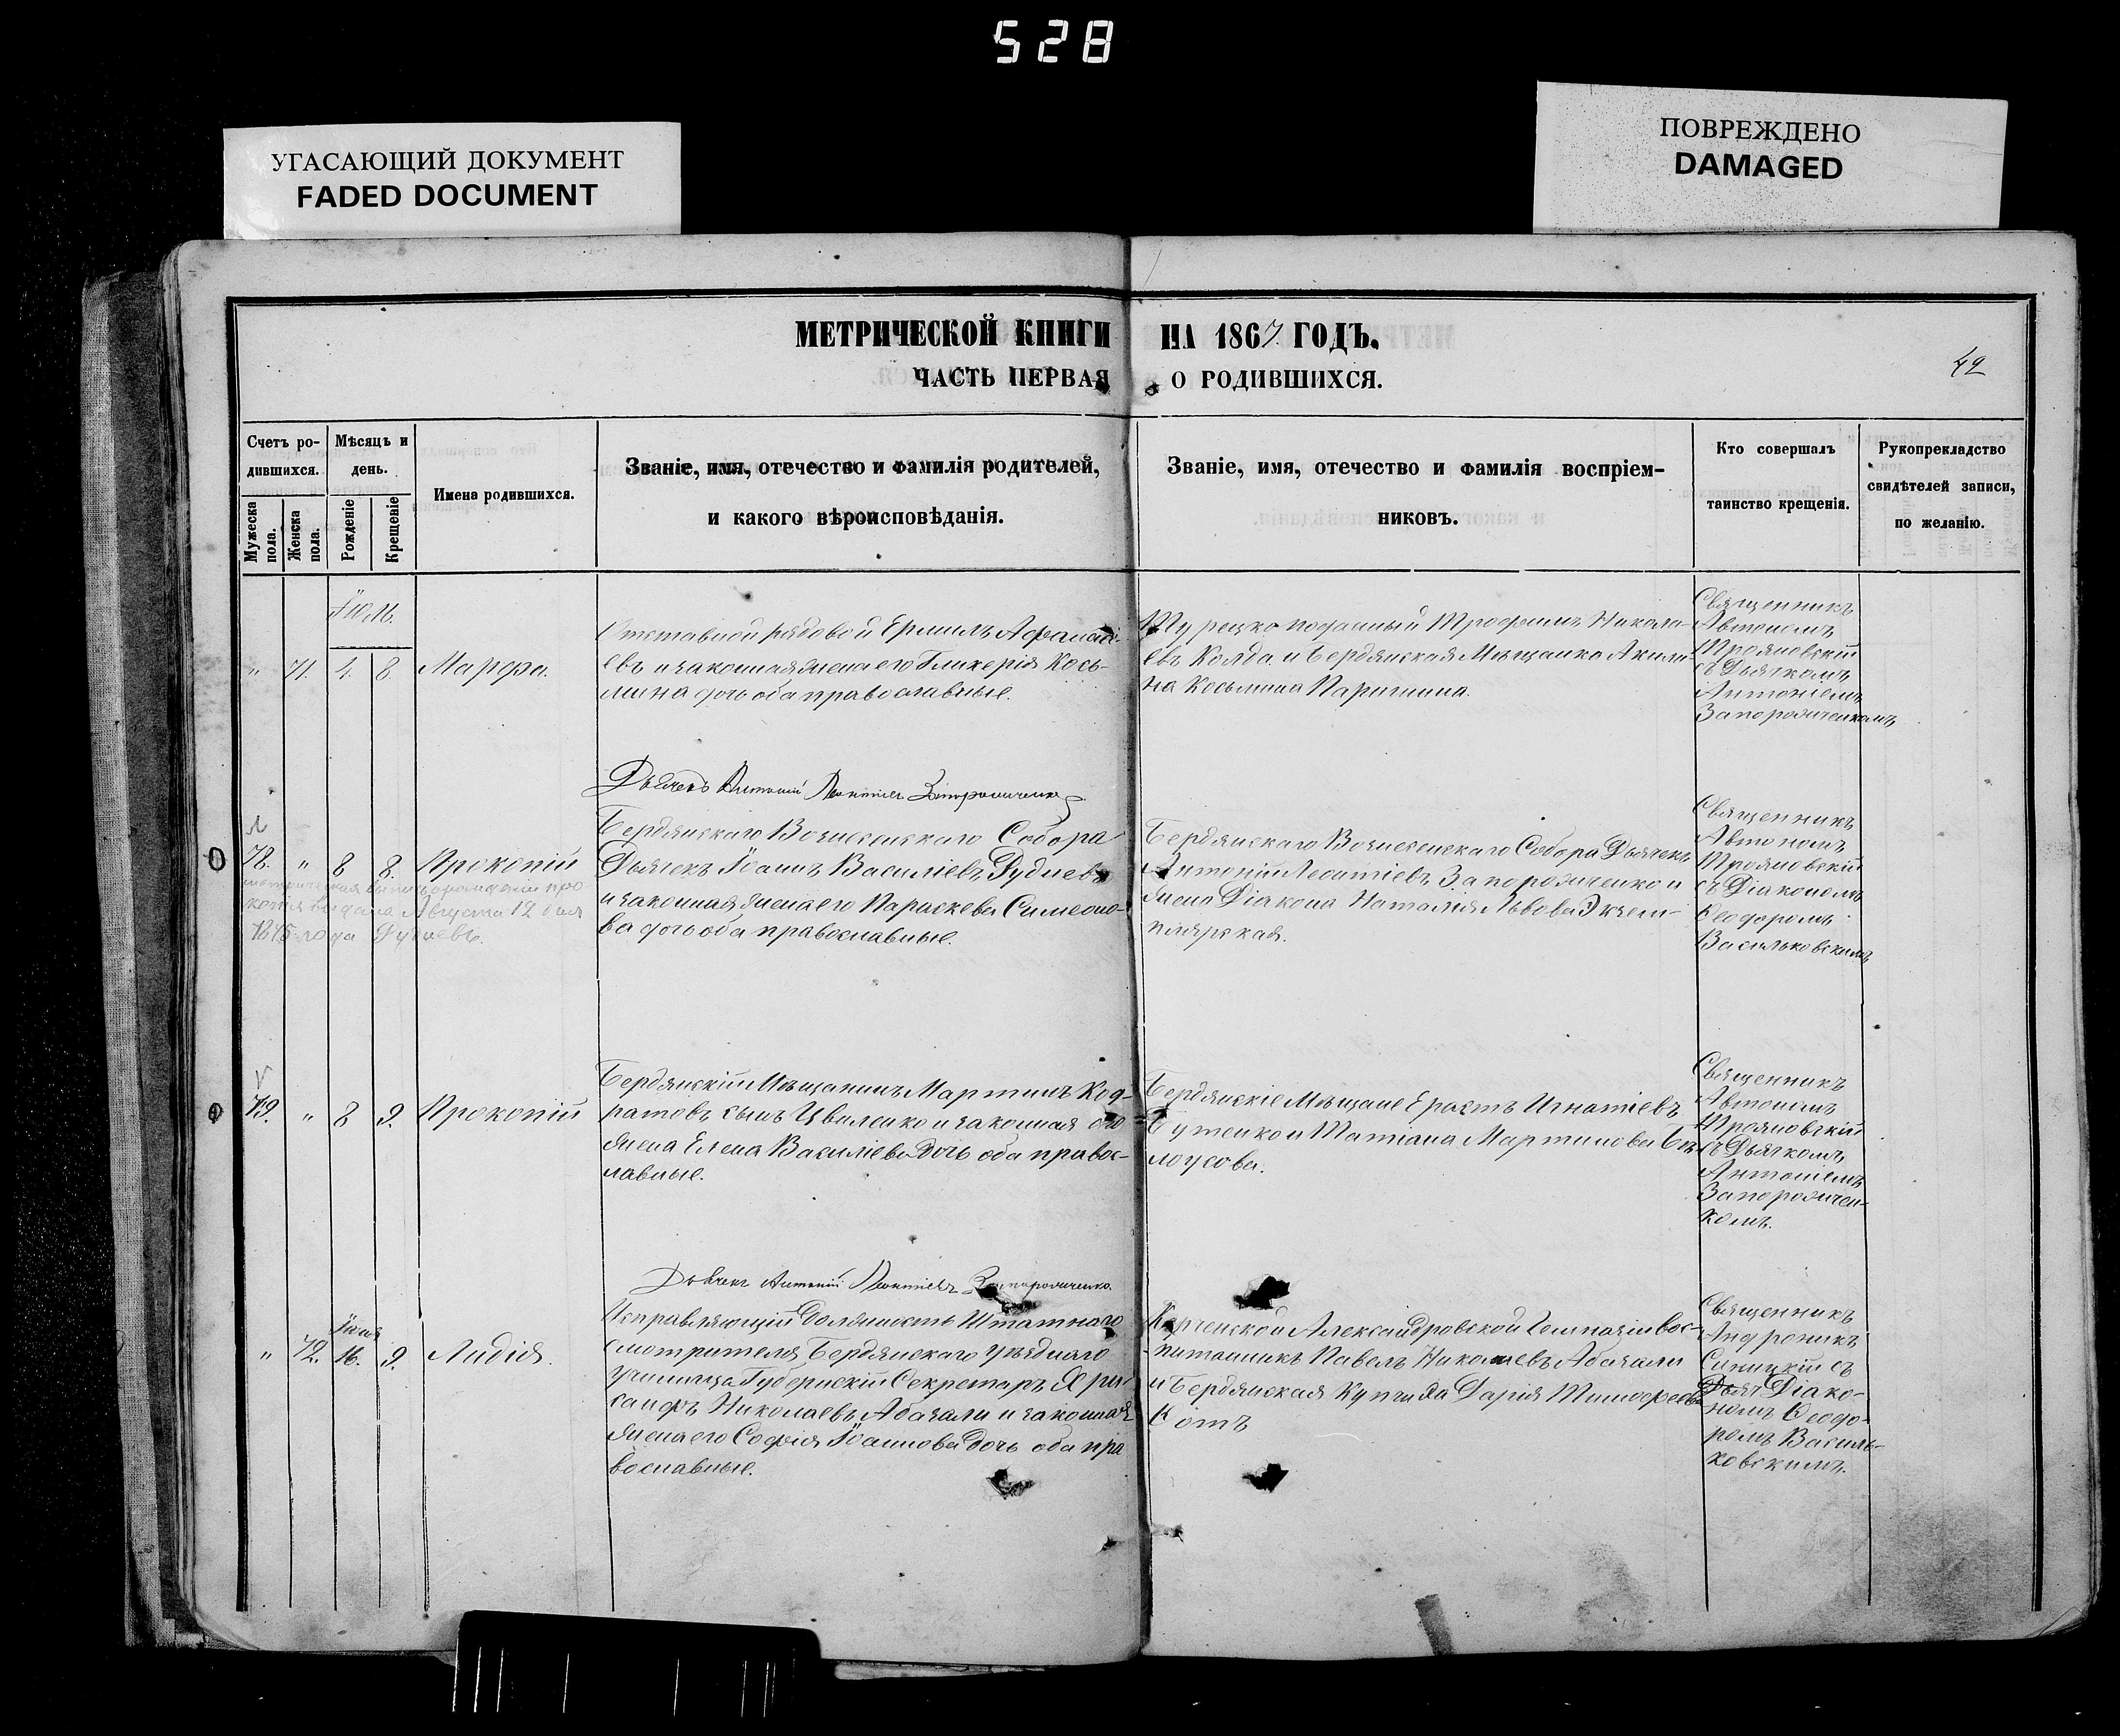 528
УГАСАЮЩИЙ ДОКУМЕНТ
FADED DOCUMENT
ПОВРЕЖДЕНО
DAMAGED
МЕТРИЧЕСКОЙ КНИГИ НА 1867 ГОДЪ.
ЧАСТЬ ПЕРВАЯ О РОДИВШИХСЯ.
42
Счетъ ро-
дившихся.
Мужеска
пола.
Женска
пола.
Мѣсяцъ и
день.
Рожденіе
Крещеніе
Имена родившихся.
Званіе, имя, отечество и фамилія родителей,
и какого вѣроисповѣданія.
Званіе, имя, отечество и фамилія воспріем-
никовъ.
Кто совершалъ
таинство крещенія.
Рукоприкладство
свидѣтелей записи,
по желанію.
Іюль.
" 71. 4. 8. Марфа.
Отставной рядовой Ермилъ Афанась-
евъ и законная жена его Гликерія Кось-
мина дочь оба православные.
Турецко подданный Трофимъ Никола-
евъ Коляда и Бердянская Мѣщанка Акили-
на Косьмина
Священникъ
Автономъ
Трояновскій
съ Дьячкомъ
Антоніемъ
Запорожченкомъ
Дьячекъ Антоній Леонтіевъ Запорожченко
78. " 8 8. Прокопій
Прокопія выдана Августа 12 дня
1875 года Рудневъ.
Бердянскаго Вознесенскаго Собора
Дьячекъ Іоаннъ Василіевъ Рудневъ
и законная жена его Параскева Симеоно-
ва дочь оба православные.
Бердянскаго Вознесенскаго Собора Дьячекъ
Антоній Леонтіевъ Запорожченко и
жена Діакона Наталія Львова Экзем-
плярская.
Священникъ
Автономъ
Трояновскій
съ Діакономъ
Ѳеодоромъ
Васильковскимъ
79. " 8 9. Прокопій
Бердянскій Мѣщанинъ Мартинъ Код-
ратовъ сынъ Цвиленко и законная его
жена Елена Василіева дочь оба правос-
лавные.
Бердянскіе Мѣщане Ерастъ Игнатіевъ
Бутенко и Татіана Мартинова Бѣ-
лоусова.
Священникъ
Автономъ
Трояновскій
съ Дьячкомъ
Антоніемъ
Запорожчен-
комъ.
Дьячекъ Антоній Леонтіевъ Запорожченко.
Іюня
" 72. 16. 9. Лидія.
Исправляющій Должность Штатнаго
смотрителя Бердянскаго Уѣзднаго
Училища Губернскій Секретарь Хри-
санфъ Николаевъ Абазали и законная
жена его Софія Іоаннова дочь оба пра
вославные.
Керченской Александровской Гимназіи вос-
питанникъ Павелъ Николаевъ Абазали
и Бердянская Купчиха Дарія Тимофеева
Котъ
Священникъ
Андроникъ
Синицкій съ
Дьяч Діако-
номъ Ѳеодо-
ромъ Василь-
ковскимъ.